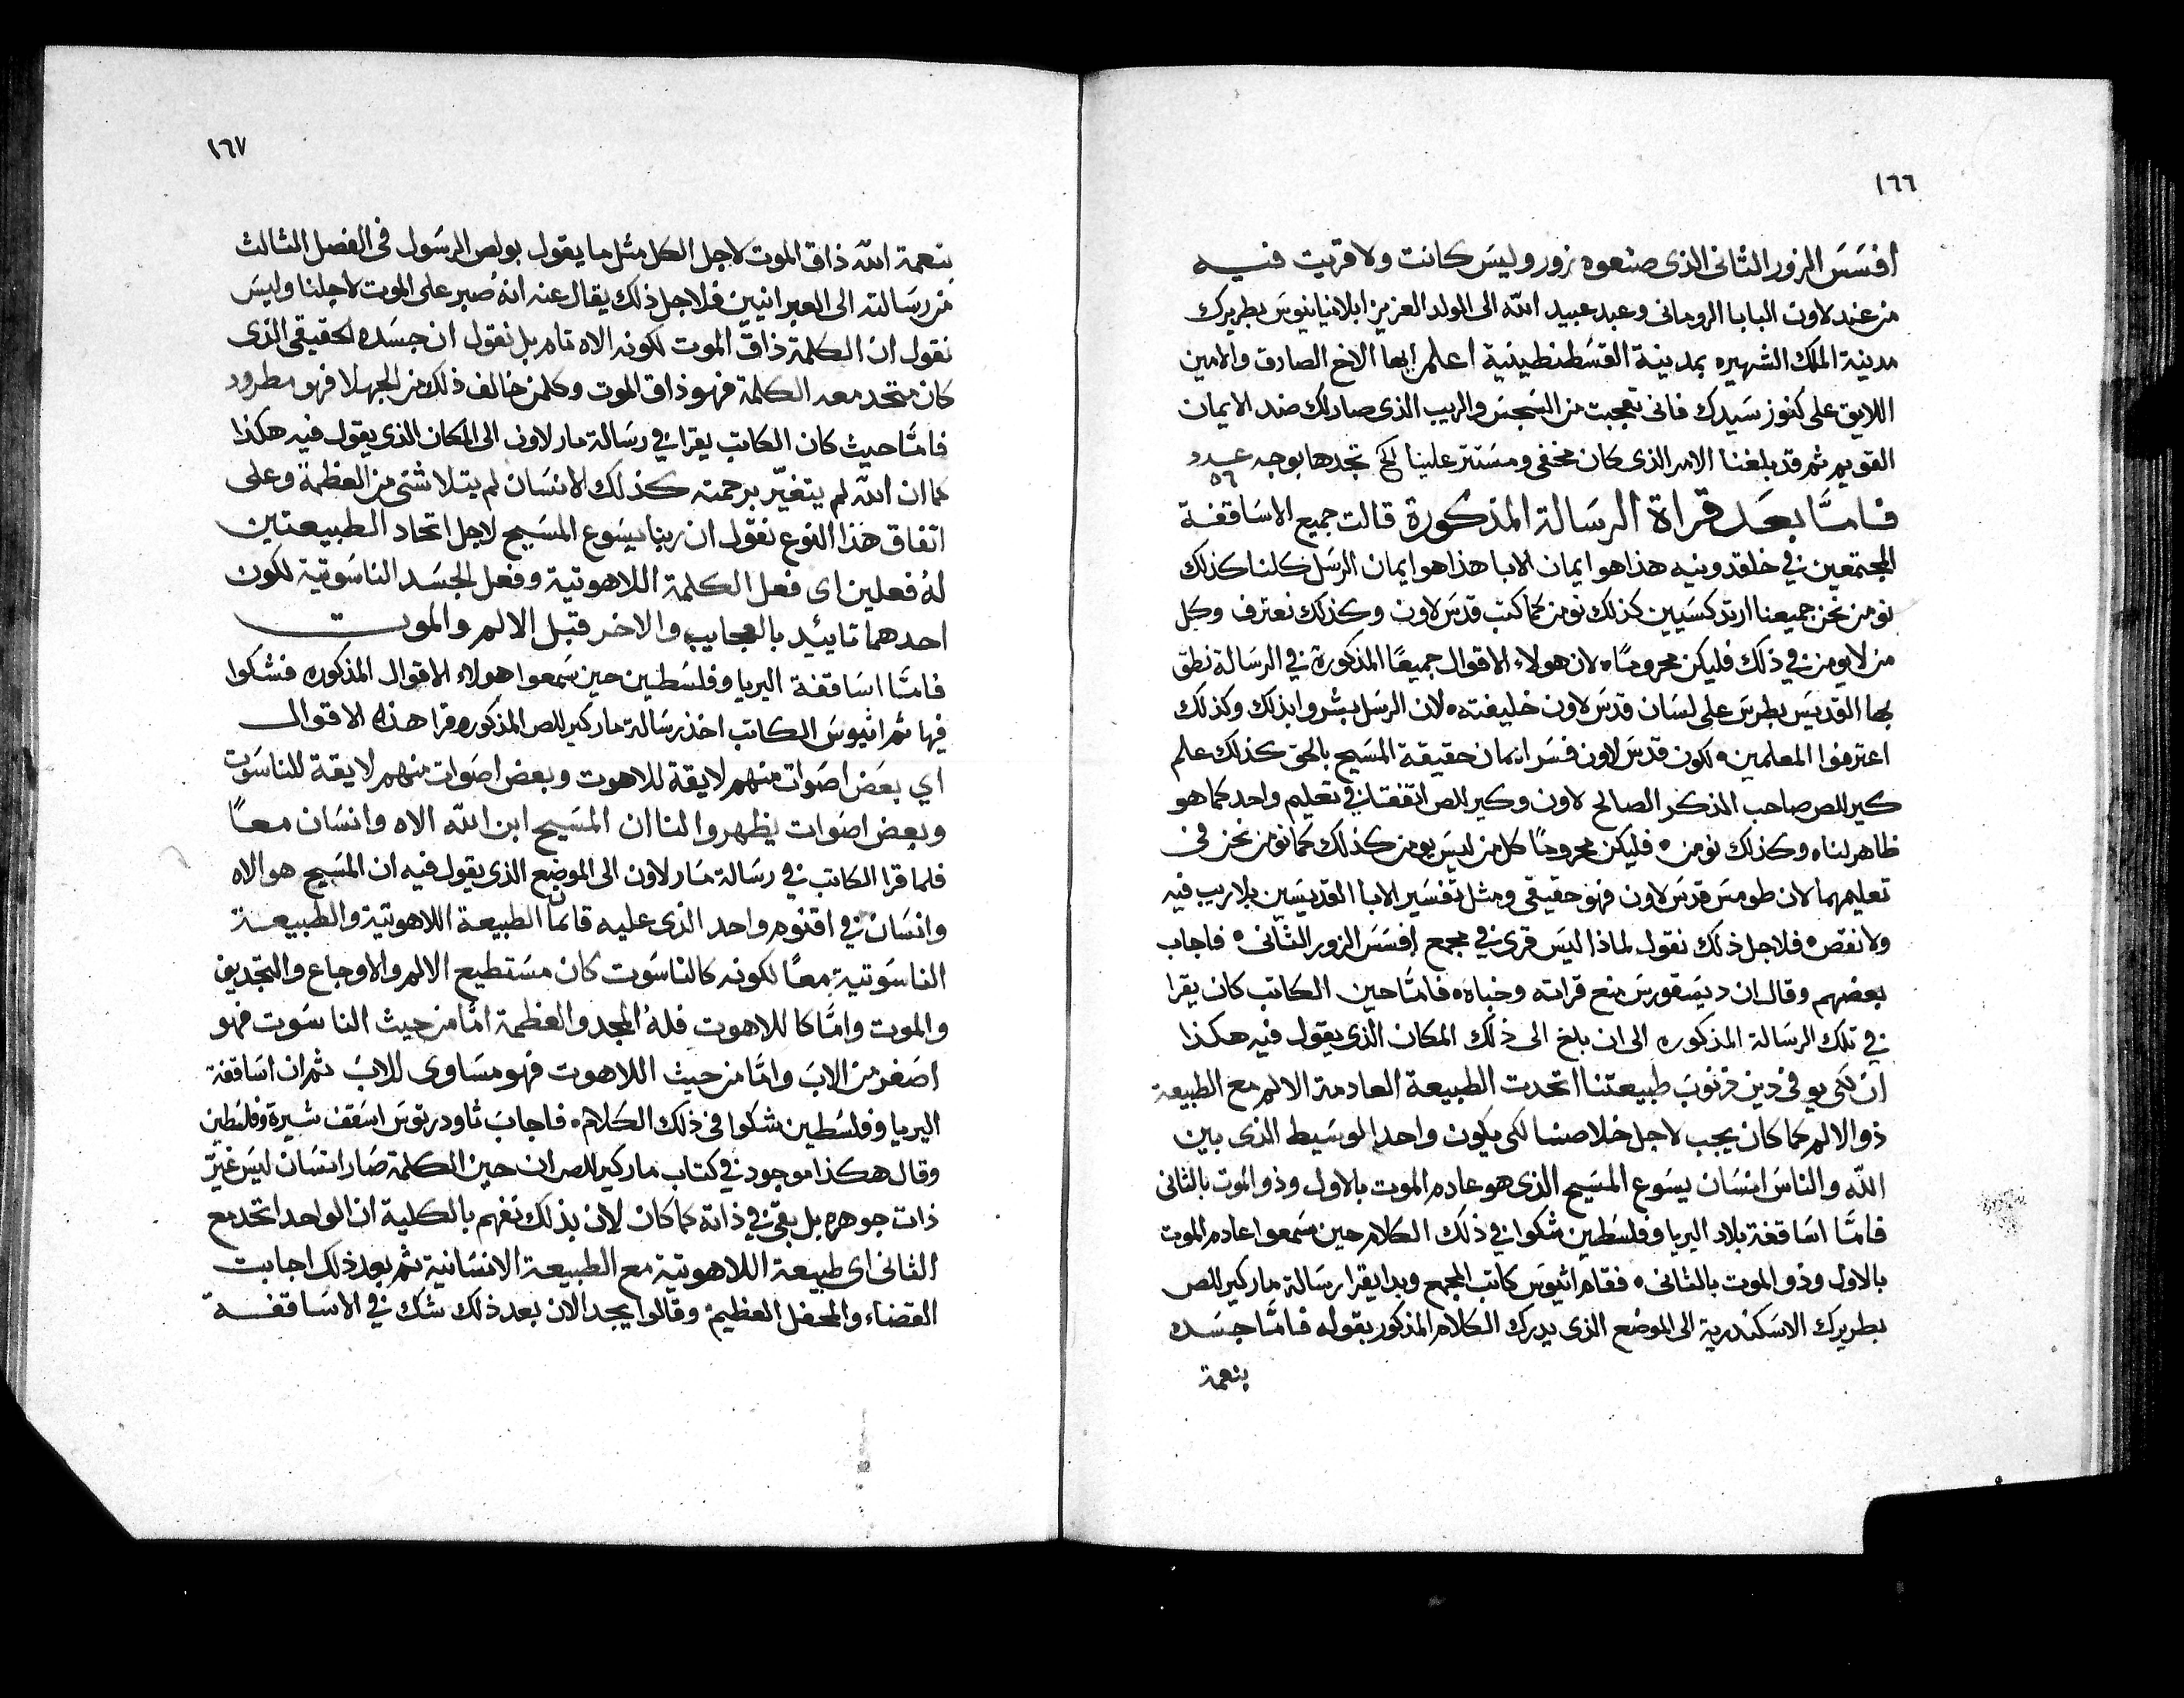 ١٦٦
افسَسَ الزور الثانى الذى صنعوه بزور وليسَ كانت ولا قريت فيه
من عند لاون البابا الرومانى وعبد عبيد الله الى الولد العزيز ابلاميانيوسَ بطريرك
مدينة الملك الشهيره بمدينة القسَطنطينية اعلم ايها الاخ الصادق والامين
اللايق على كنوز سَيدك فانى تعجبت من السَجسَ والريب الذى صار لك ضد الايمان
القويم ثم قد بلغنا الامر الذى كان مخفى ومسَتتر علينا الخ تجدها بوجه عدد
٥٦
فامَّا بعَد قراة الرسَالة المذكورة قالت جميع الاسَاقفة
المجتمعين في خلقدونيه هذا هو ايمان الابا هذا هو ايمان الرسَل كلنا كذلك
نومن نحن جميعنا ارتدكسَيين كذلك نومن كما كتب قدسَ لاون وكذلك نعترف وكل
من لا يومن في ذلك فليكن محرومًا ه لان هولاء الاقوال جميعًا المذكورة في الرسَالة نطق
بها القديسَ بطرسَ على لسَان قدسَ لاون خليفته ه لان الرسَل بشروا بذلك وكذلك
اعترفوا المعلمين ه لكون قدسَ لاون فسَر ايمان حقيقة المسَيح بالحق كذلك علم
كيرللص صاحب الذكر الصالح لاون وكيرللص اتفقتا في تعليم واحد كما هو
ظاهر لنا ه وكذلك نومن ه فليكن محرومًا كل من ليسَ يومن كذلك كما نومن نحن في
تعليمهما لان طومسَ قدسَ لاون فهو حقيقى ومثل تفسَير الابا القديسَين بلا ريب فيه
ولا نقص ه فلاجل ذلك نقول لماذا ليسَ قرى في مجمع افسَسَ الزور الثانى ه فاجاب
بعضهم وقال ان ديسَقورسَ منع قراته وخباه ه فامَّا حين الكاتب كان يقرا
في تلك الرسَالة المذكوره الى ان بلغ الى ذلك المكان الذى يقول فيه هكذا
ان لكى يوفى دين ذنوب طبيعتنا اتحدت الطبيعة العادمة الالم مع الطبيعة
ذو الالم كما كان يجب لاجل خلاصنا لكى يكون واحد الوسَيط الذى بين
الله والناسَ انسَان يسَوع المسَيح الذى هو عادم الموت بالاول وذو الموت بالثانى
فامَّا اسَاقفة بلاد اليريا وفلسَطين شكوا في ذلك الكلام حين سَمعوا عادم الموت
بالاول وذو الموت بالثانى ه فقام اثيوسَ كاتب المجمع وبدا يقرا رسَالة مار كيرللص
بطريرك الاسَكندرية الى الموضع الذى يدرك الكلام المذكور بقوله فامَّا جسَده
بنعمة
١٦٧
بنعمة الله ذاق الموت لاجل الكل مثل ما يقول بولص الرسَول فى الفصل الثالث
من رسَالته الى العبرانيين فلاجل ذلك يقال عنه انهُ صبر على الموت لاجلنا وليسَ
نقول ان الكلمة ذاق الموت لكونه الاه تام بل نقول ان جسَده الحقيقى الذى
كان متحد معه الكلمة فهو ذاق الموت وكلمن خالف ذلك من الجهلا فهو مطرود
فامَّا حيث كان الكاتب يقرا في رسَالة مار لاون الى المكان الذى يقول فيه هكذا
كما ان الله لم يتغيّر برحمته كذلك الانسَان لم يتلاشى من العظمة وعلى
اتفاق هَذا النوع نقول ان ربنا يسَوع المسَيح لاجل اتحاد الطبيعتين
لهُ فعلين اى فعل الكلمة اللاهوتية وفعل الجسَد الناسَوتية لكون
احدهما تاييُد بالعجايب والاخر قبل الالم والموت
فامَّا اسَاقفة اليريا وفلسَطين حين سَمعوا هولاء الاقوال المذكوره فشكوا
فيها ثم اثيوسَ الكاتب اخذ رسَالة مار كيرللص المذكوره قرا هذه الاقوال
اي بعَض اصَوات منهم لايقة للاهوت وبعض اصَوات منهم لايقة للناسَوت
وبعض اصَوات يظهروا لنا ان المسَيح ابن الله الاه وانسَان معًا
فلما قرا الكاتب في رسَالة مَار لاون الى الموضع الذى يقول فيه ان المسَيح هو الاه
وانسَان في اقنوم واحد الذى عليه قايمًا الطبيعة اللاهوتية والطبيعة
الناسَوتية معًا لكونه كالناسَوت كان مسَتطيع الالم والاوجاع والتجديف
والموت وامَّا كاللاهوت فلهُ المجد والعظمة امَّا من حيث الناسَوت فهو
اصَغر من الابَ وامَّا من حيث اللاهوت فهو مسَاوى للابَ ثم ان اسَاقفة
اليريا وفلسَطين شكوا فى ذلك الكلام ه فاجابَ تاودريتوسَ اسَقف شيرة وفلسَطين
وقال هكذا موجود في كتاب مار كيرللص ان حين الكلمة صَار انسَان ليسَ غيّر
ذات جوهره بل بقى في ذاته كما كان لان بذلك نفهم بالكلية ان الواحد اتحد مع
الثانى اى طبيعة اللاهوتية مع الطبيعة الانسَانية ثم بعد ذلك اجابت
القضاء والمحفل العظيم وقالوا يجد الان بعد ذلك شك في الاسَاقفة